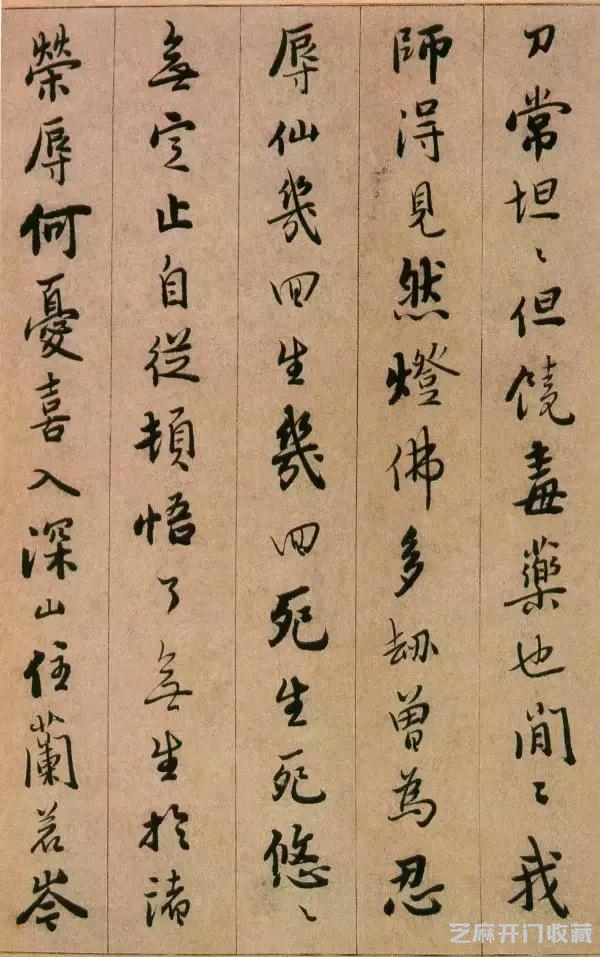 刀常坦〻但饒毒藥也閒〻我
師得見然燈佛多劫曾為忍
辱仙幾回生幾回死生死悠〻
無定止自從頓悟了無生於諸
榮辱何憂喜入深山住蘭若岑
芝麻开门收藏